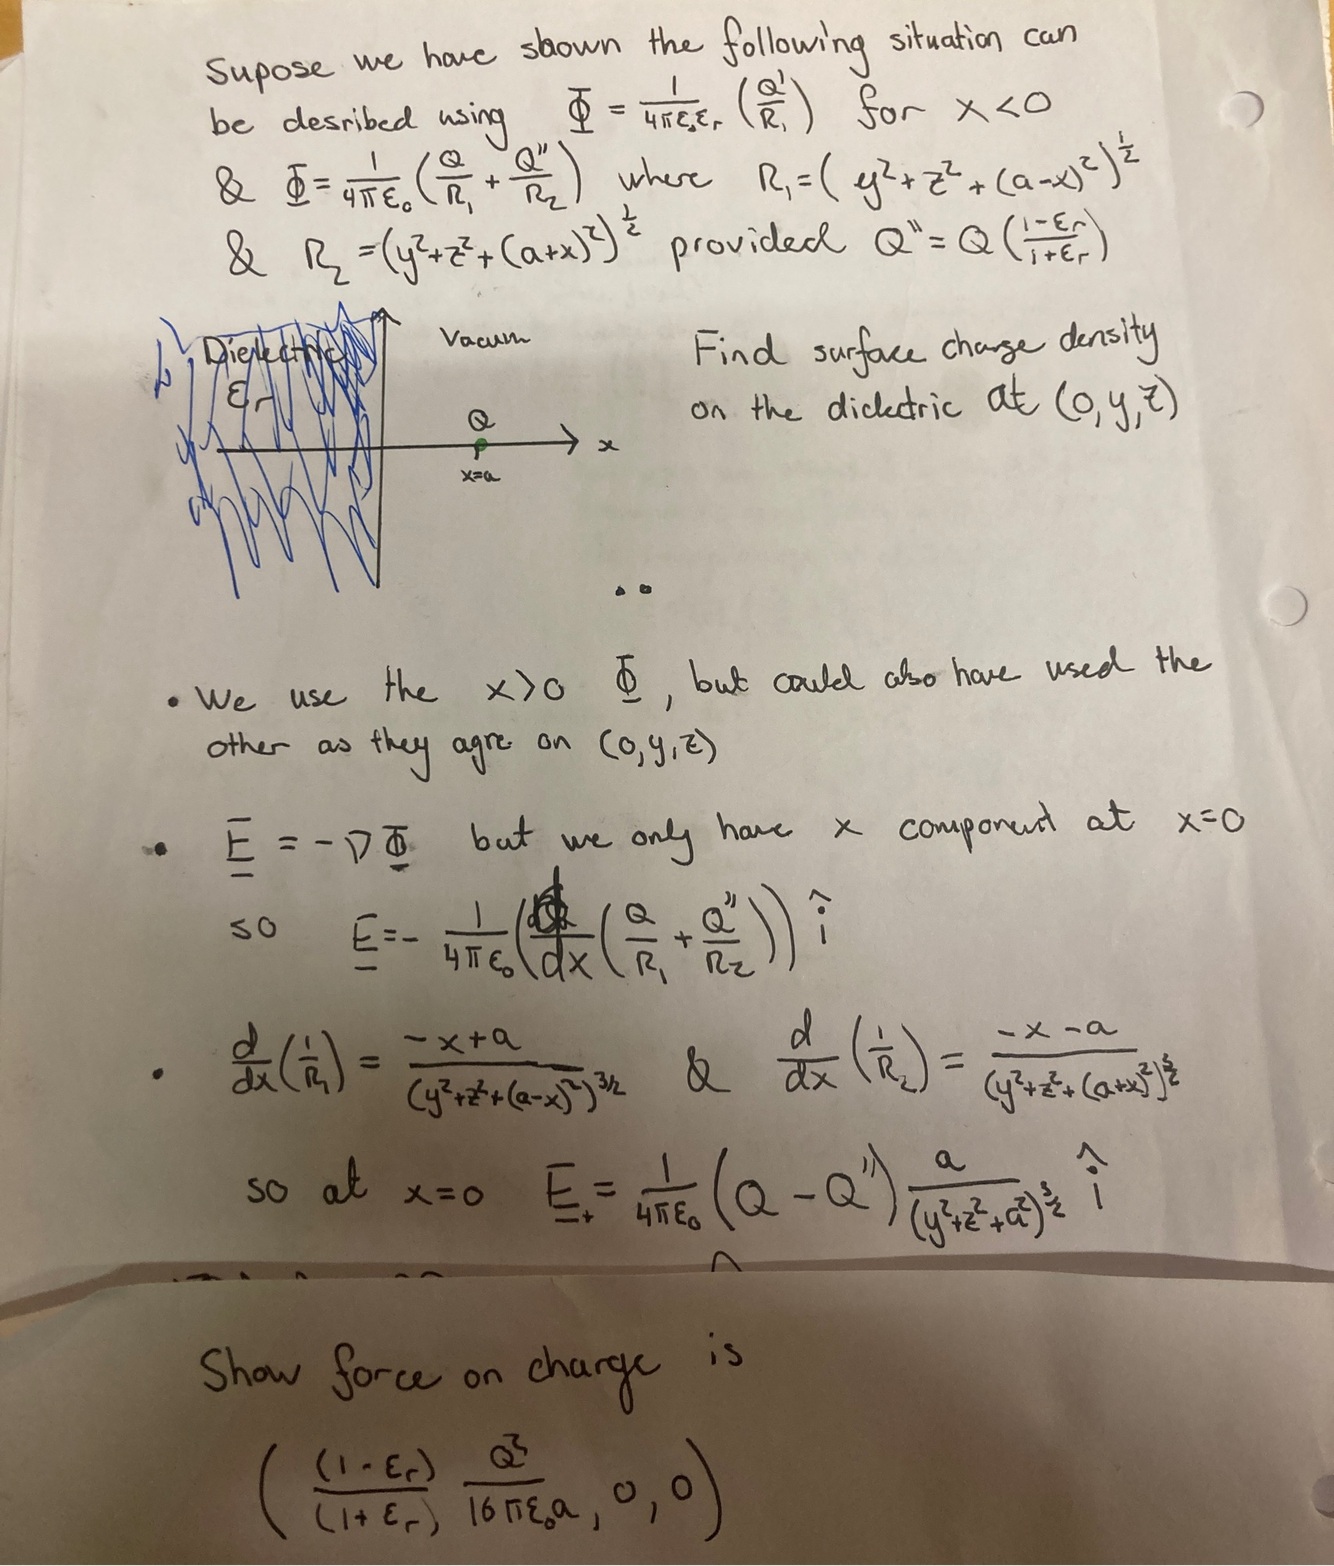 Supose we have shown the following situation can
be desribed using Φ = 1/4πε₀εᵣ (Q'/R₁) for x<0
& Φ = 1/4πε₀ (Q/R₁ + Q''/R₂) where R₁ = (y²+z²+(a-x)²)^½
& R₂ = (y²+z²+(a+x)²)^½ provided Q'' = Q (1-εᵣ/1+εᵣ)
Dielectric
εᵣ
Vacum
Q
x=a
x
Find surface charge density
on the dielectric at (0,y,z)
• We use the x>0 Φ, but could also have used the
other as they agre on (0,y,z)
• E = -∇Φ but we only have x component at x=0
so E = - 1/4πε₀ (d/dx (Q/R₁ + Q''/R₂)) î
• d/dx (1/R₁) = -x+a/(y²+z²+(a-x)²)^3/2 & d/dx (1/R₂) = -x-a/(y²+z²+(a+x)²)^3/2
so at x=0 E₊ = 1/4πε₀ (Q - Q'') a/(y²+z²+a²)^3/2 î
Show force on charge is
((1-εᵣ)/(1+εᵣ) Q²/16πε₀a, 0, 0)